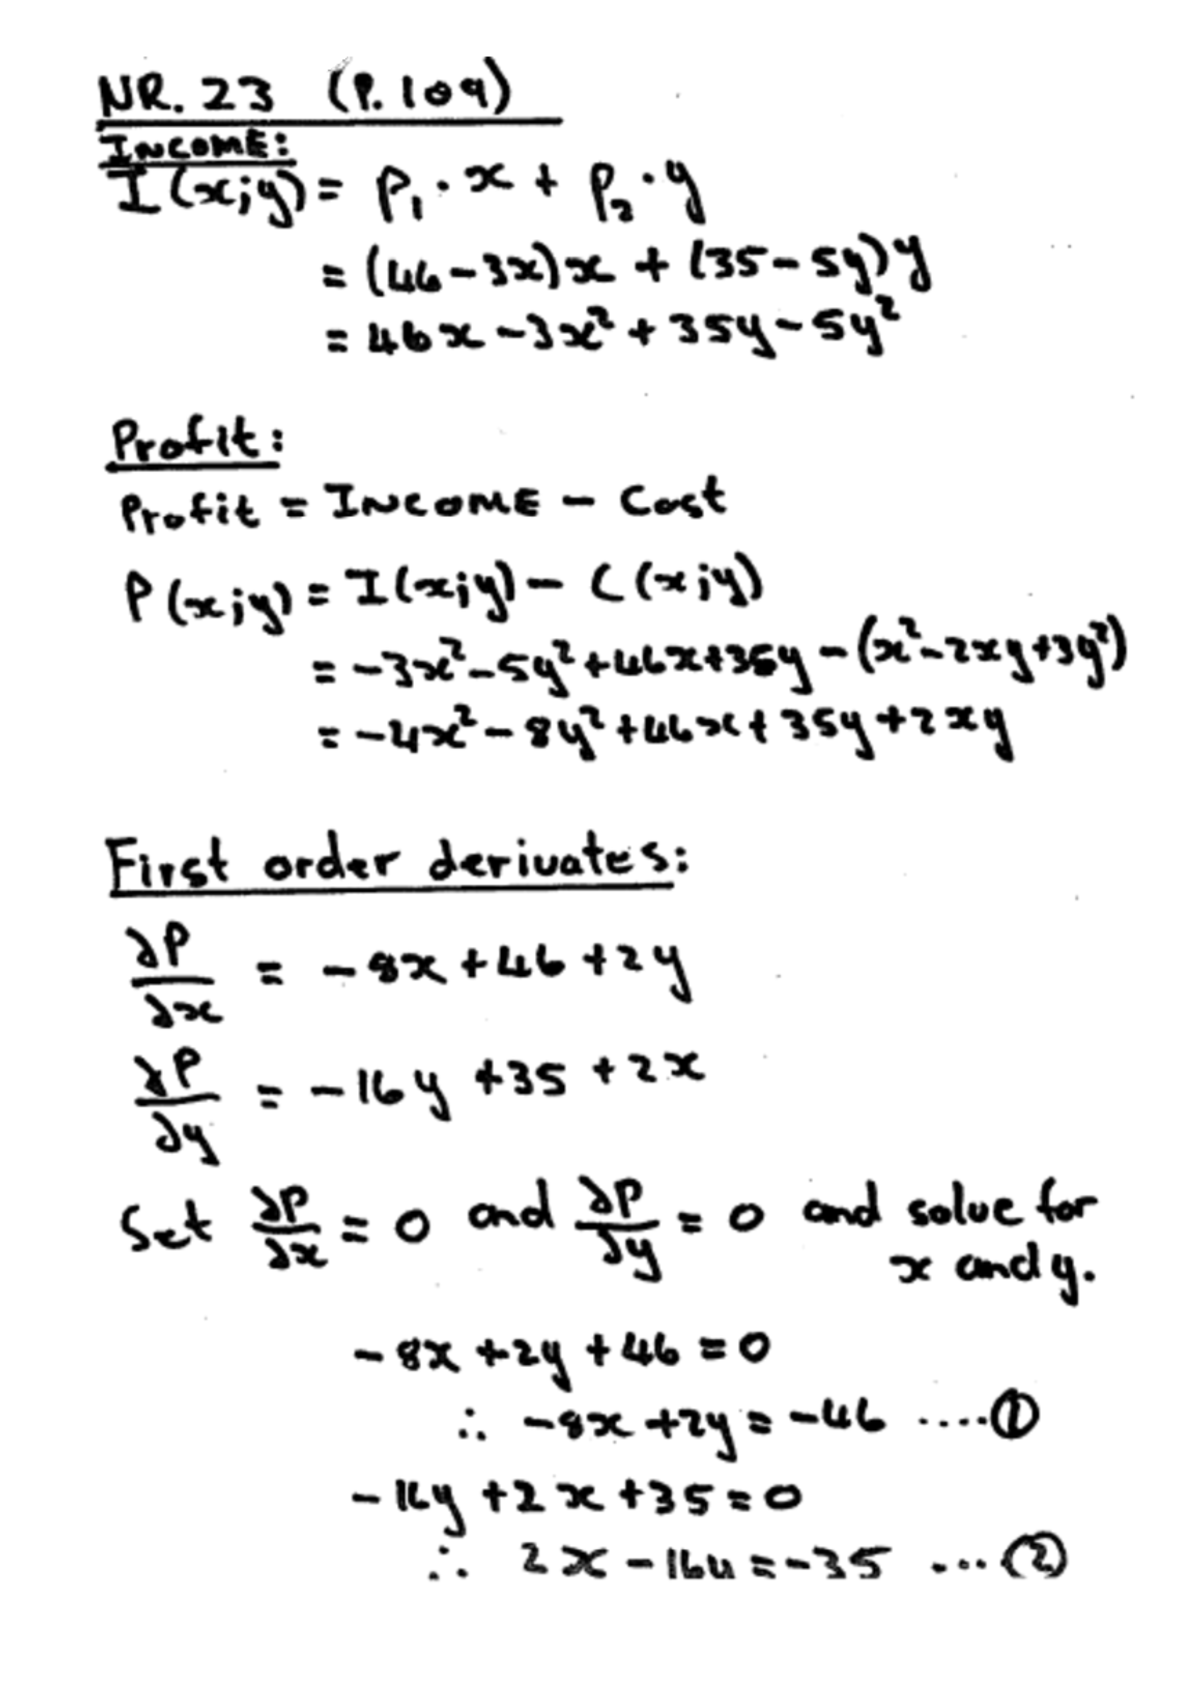 NR. 23 (P. 109)
INCOME:
I(x;y) = p₁·x + p₂·y
= (46-3x)x + (35-5y)y
= 46x-3x²+35y-5y²
Profit:
Profit = INCOME - Cost
P(x;y) = I(x;y) - C(x;y)
= -3x²-5y²+46x+35y-(x²-2xy+3y²)
= -4x²-8y²+46x+35y+2xy
First order derivates:
∂P/∂x = -8x+46+2y
∂P/∂y = -16y+35+2x
Set ∂P/∂x = 0 and ∂P/∂y = 0 and solve for
x and y.
-8x+2y+46=0
∴ -8x+2y=-46 .....①
-16y+2x+35=0
∴ 2x-16y=-35 ....②